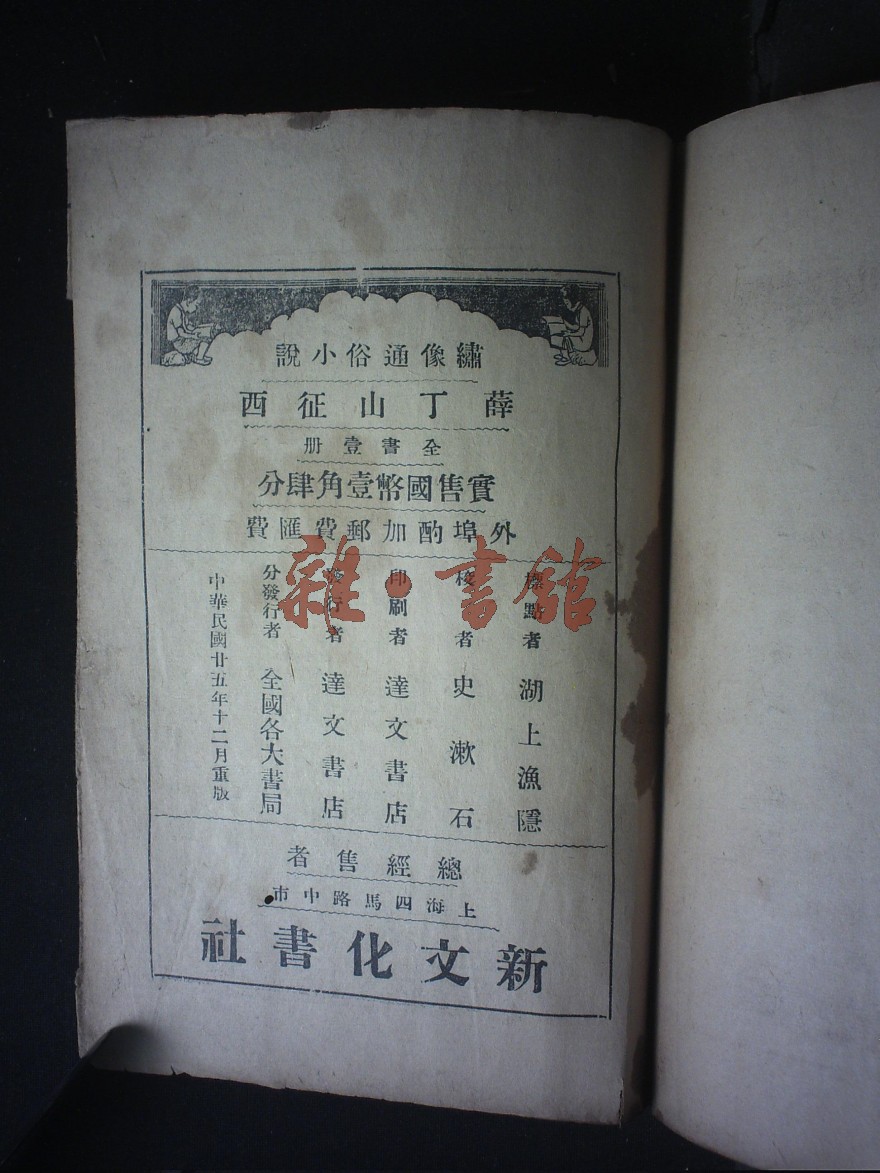 繡像通俗小說
薛丁山征西
全書壹册
實售國幣壹角肆分
外埠酌加郵費匯費
標點者 湖上漁隱
校者 史漱石
印刷者 達文書店
發行者 達文書店
分發行者 全國各大書局
中華民國廿五年十二月重版
總經售者
上海四馬路中市
新文化書社
雜·書館